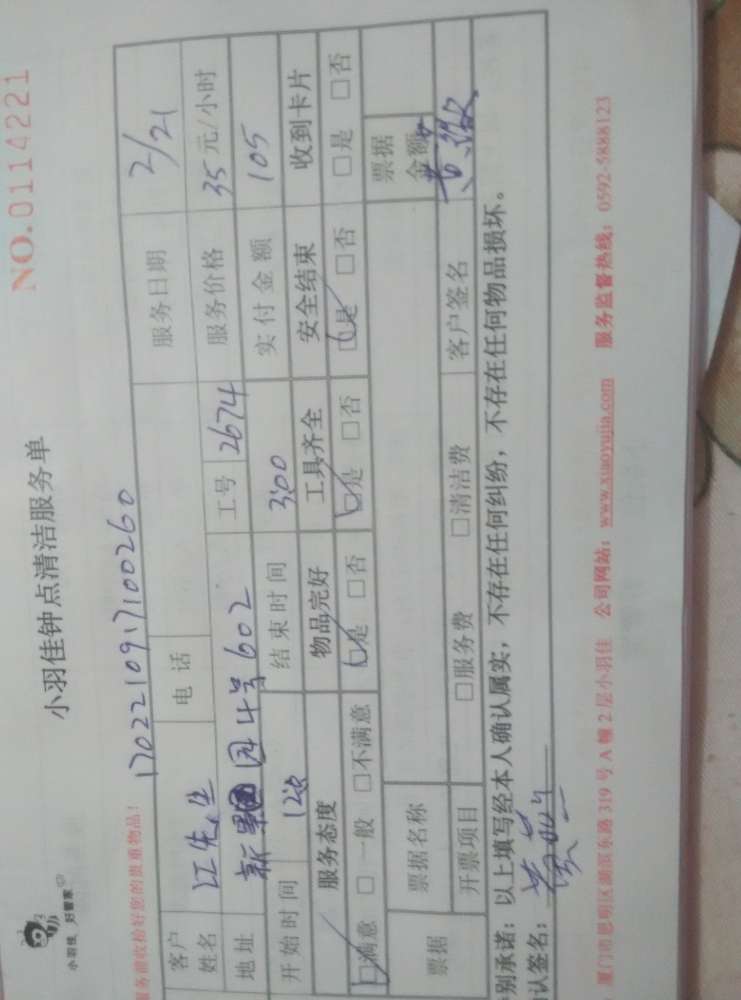 小羽佳 好管家
小羽佳钟点清洁服务单
NO.0114221
服务前收拾好您的贵重物品!
1702210917100260
客户姓名 江先生 电话 服务日期 2/21
地址 工号 2674 服务价格 35元/小时
开始时间 结束时间 3:00 实付金额 105
服务态度 物品完好 工具齐全 安全结束 收到卡片
□满意 □一般 □不满意 □是 □否 □是 □否 □是 □否 □是 □否
票据 票据名称 票据金额
开票项目 □服务费 □清洁费 客户签名
别承诺:以上填写经本人确认属实,不存在任何纠纷,不存在任何物品损坏。
认签名:
厦门市思明区湖滨东路 319 号 A 幢 2 层小羽佳 公司网站:www.xiaoyujia.com 服务监督热线:0592-5888123